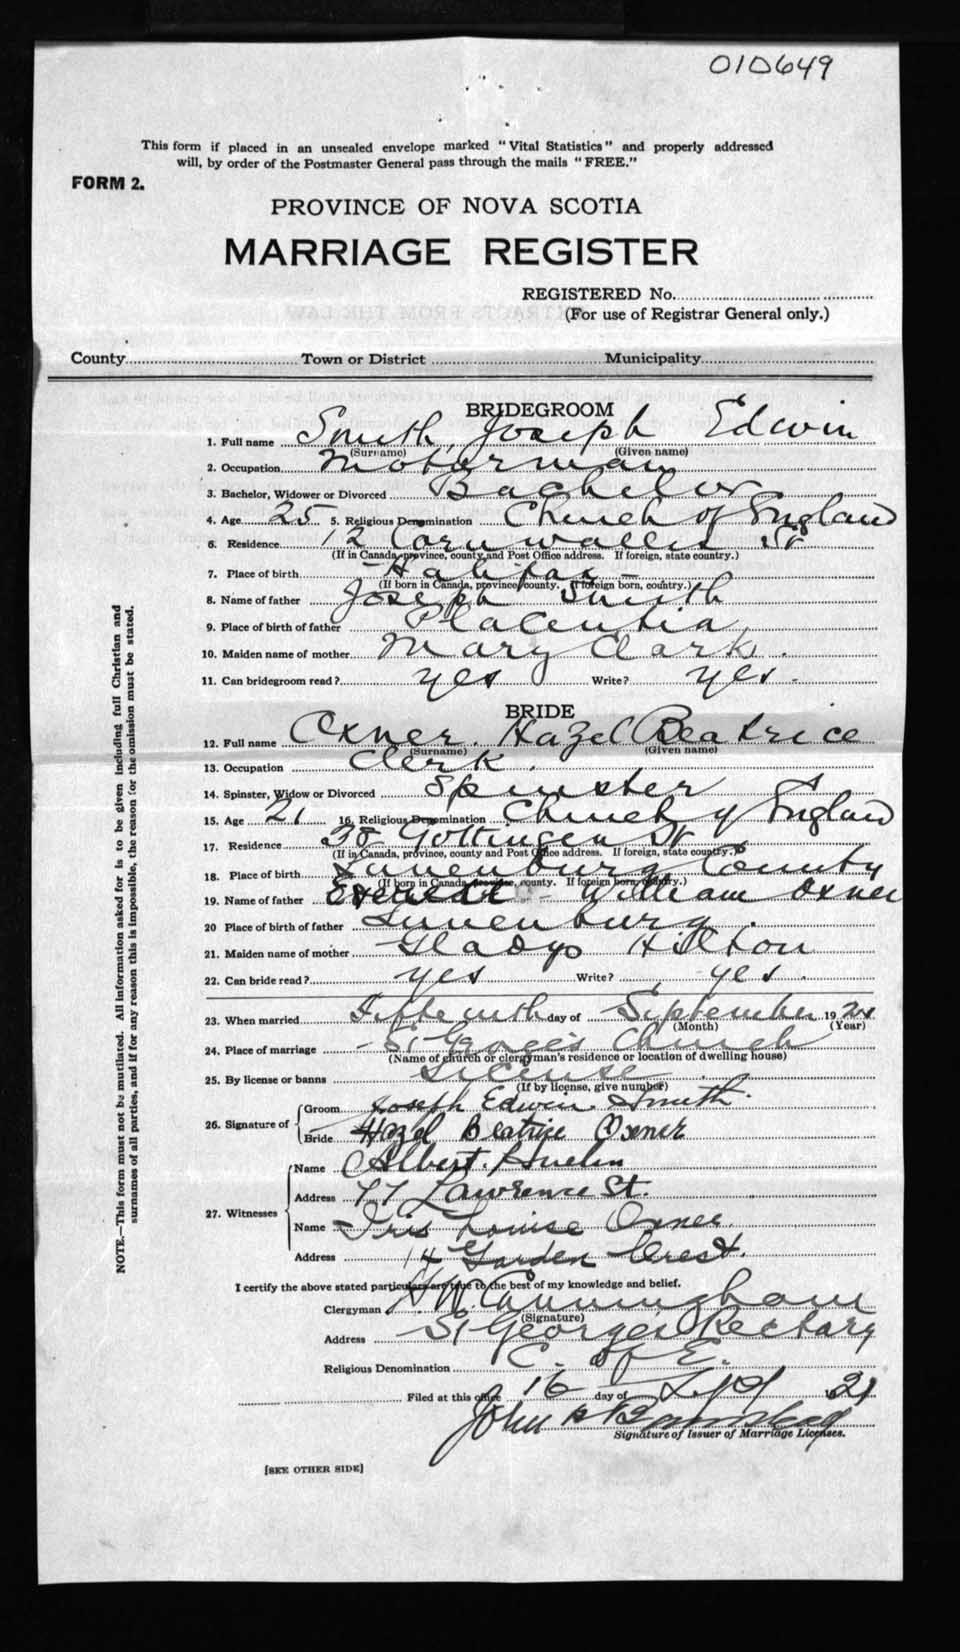 010649
This form if placed in an unsealed envelope marked "Vital Statistics" and properly addressed
will, by order of the Postmaster General pass through the mails "FREE."
FORM 2.
PROVINCE OF NOVA SCOTIA
MARRIAGE REGISTER
REGISTERED No.
(For use of Registrar General only.)
County Town or District Municipality
BRIDEGROOM
1. Full name Smith, Joseph Edwin
(Surname) (Given name)
2. Occupation Motorman
3. Bachelor, Widower or Divorced Bachelor
4. Age 25 5. Religious Denomination Church of England
6. Residence 12 Cornwallis St
(If in Canada, province, county and Post Office address. If foreign, state country.)
7. Place of birth Halifax
(If born in Canada, province, county. If foreign born, country.)
8. Name of father Joseph Smith
9. Place of birth of father Placentia
10. Maiden name of mother Mary Clark.
11. Can bridegroom read? yes Write? yes.
BRIDE
12. Full name Oxner. Hazel Beatrice
(Surname) (Given name)
13. Occupation Clerk.
14. Spinster, Widow or Divorced Spinster
15. Age 21 16. Religious Denomination Church of England
17. Residence 38 Gottingen St.
(If in Canada, province, county and Post Office address. If foreign, state country.)
18. Place of birth Lunenburg County
(If born in Canada, province, county. If foreign born, country.)
19. Name of father William Oxner
20 Place of birth of father Lunenburg.
21. Maiden name of mother Gladys Hilton
22. Can bride read? yes Write? yes.
23. When married Fifteenth day of September 19
(Month) (Year)
24. Place of marriage St George's Church
(Name of church or clergyman's residence or location of dwelling house)
25. By license or banns License
(If by license, give number)
26. Signature of Groom Joseph Edwin Smith.
Bride Hazel Beatrice Oxner
27. Witnesses Name Albert
Address 77 Lawrence St.
Name Iris Louise Oxner.
Address 14 Garden Crest.
I certify the above stated particulars are true to the best of my knowledge and belief.
Clergyman H. W. Cunningham
(Signature)
Address St George's Rectory
Religious Denomination C. of E.
Filed at this office 16 day of Sept 21
John
Signature of Issuer of Marriage Licenses.
[SEE OTHER SIDE]
NOTE.—This form must not be mutilated. All information asked for is to be given including full Christian and
surnames of all parties, and if for any reason this is impossible, the reason for the omission must be stated.